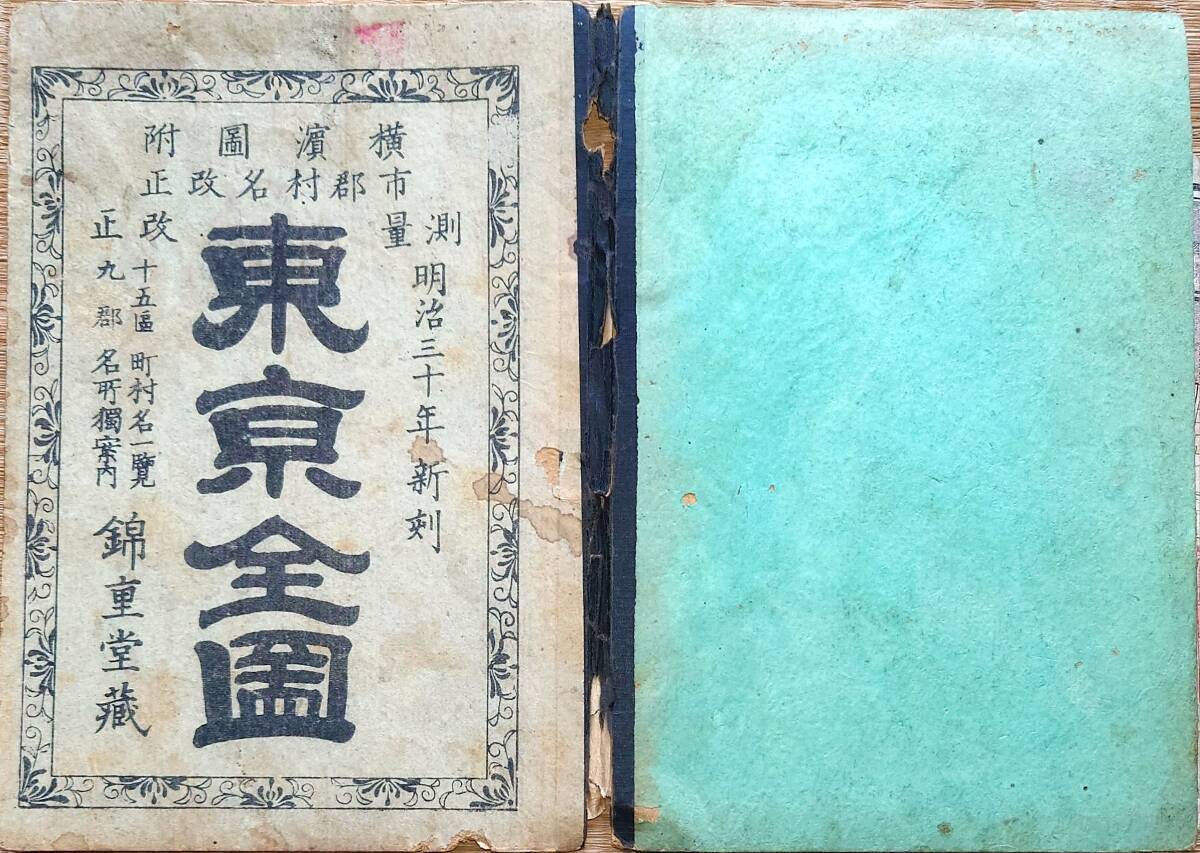 橫濱圖附
市郡村名改正
測量
明治三十年新刻
東京全圖
改正
十五區町村名一覽
九郡名所獨案内
錦重堂藏